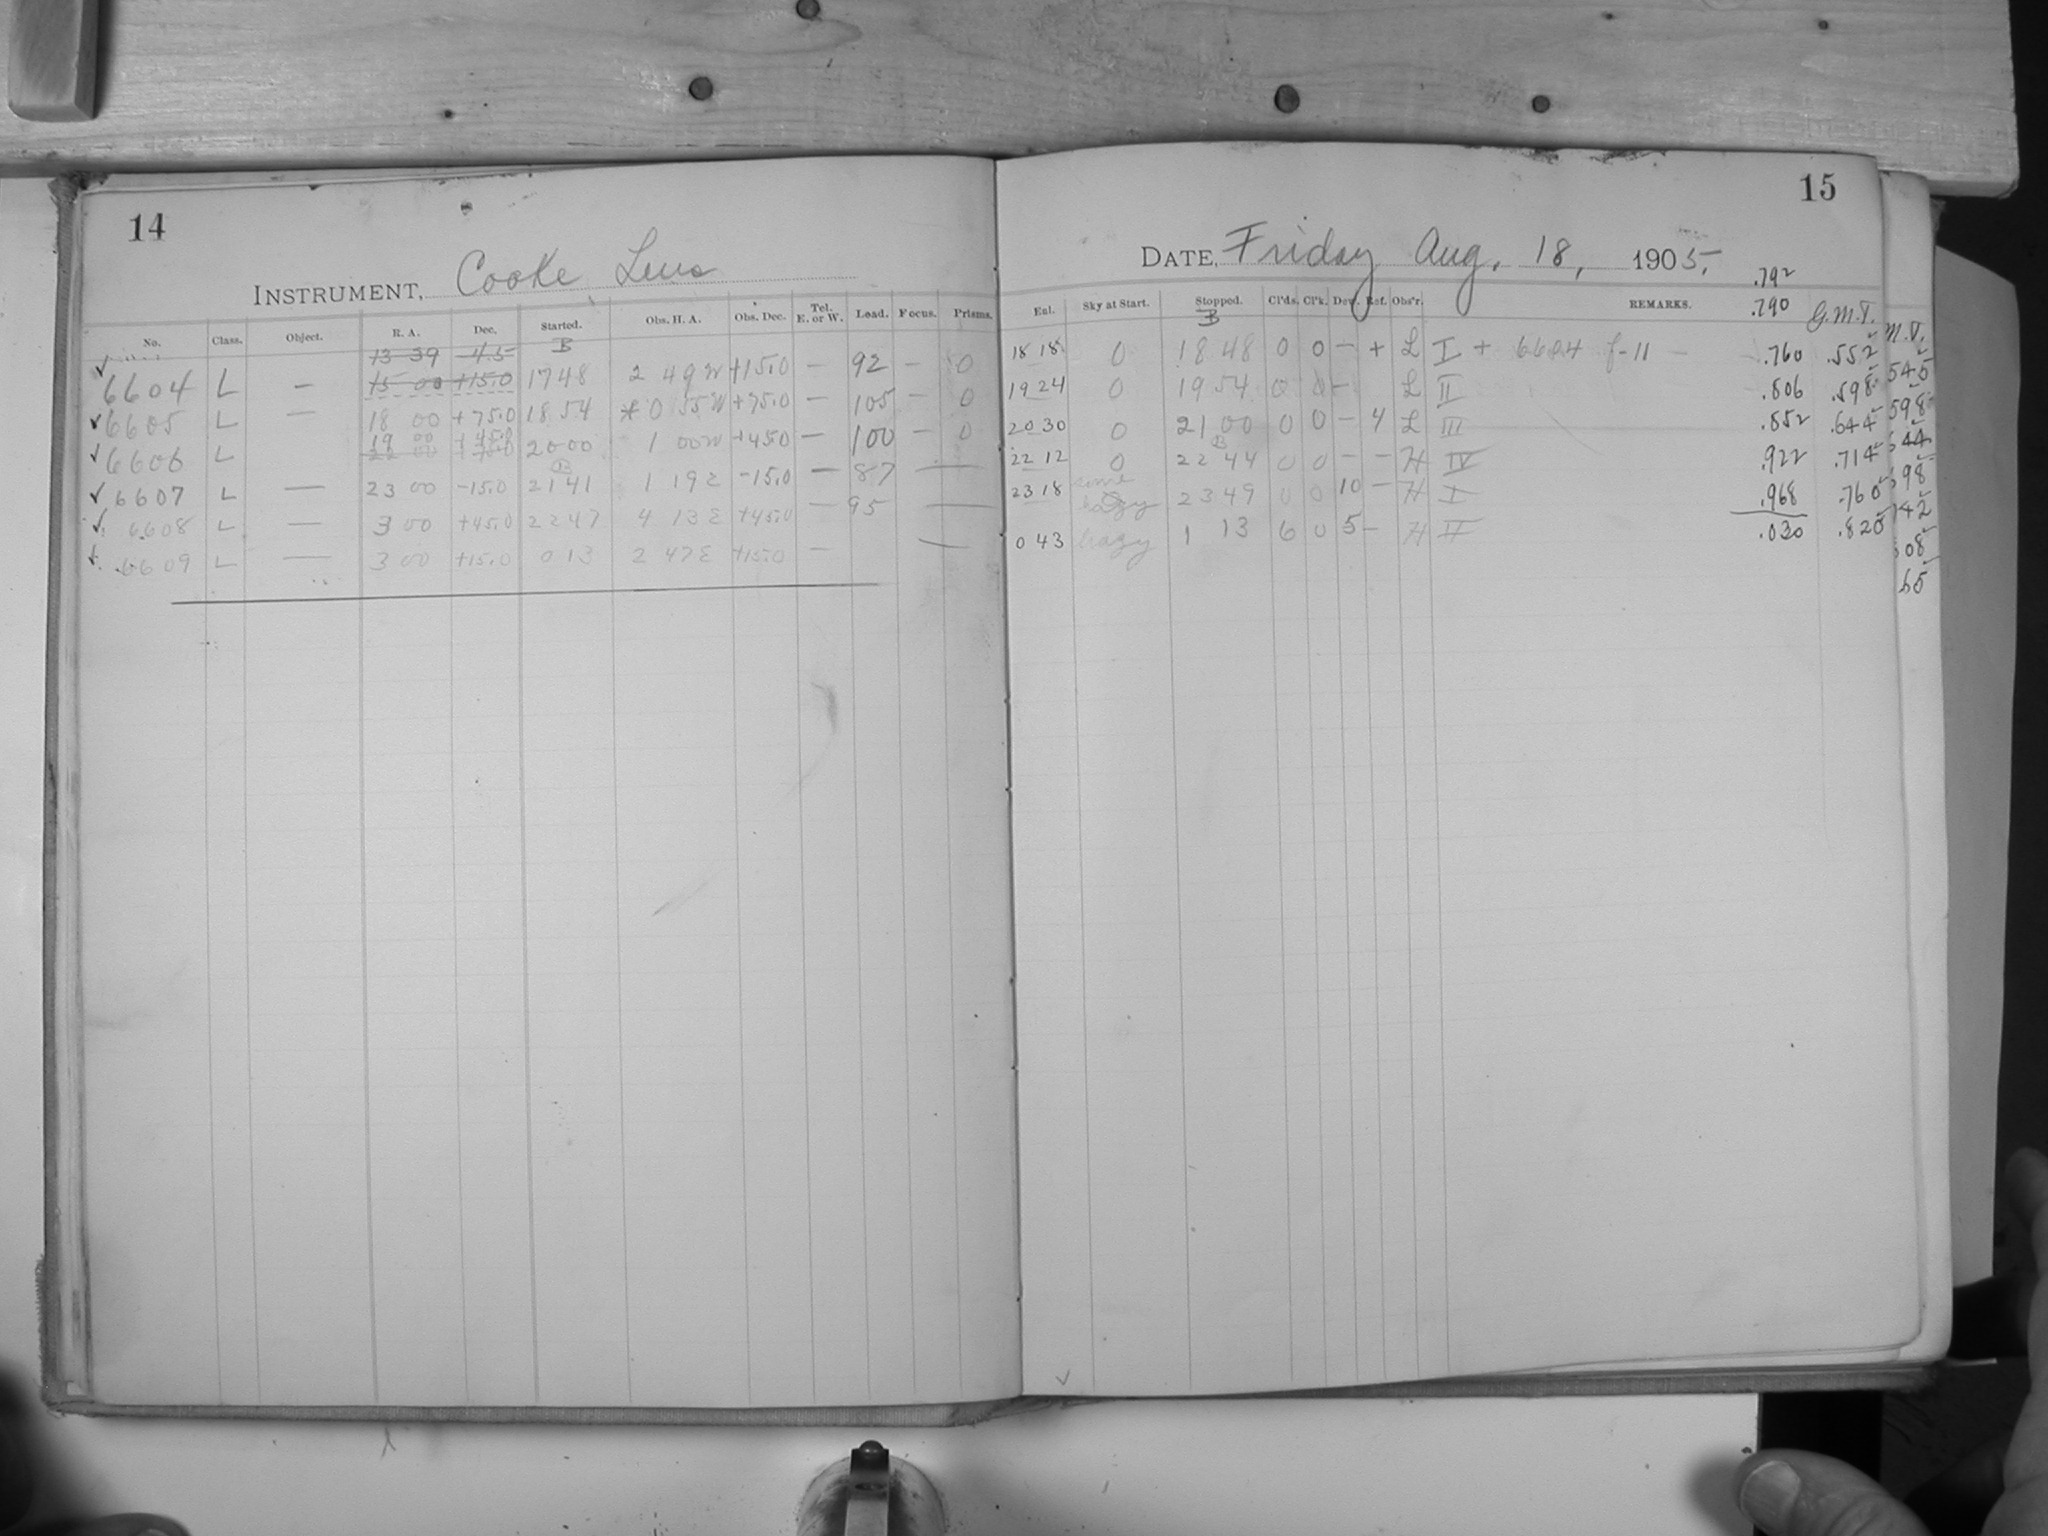 14
INSTRUMENT, Cooke Lens
No. Class. Object. R. A. Dec. Started. Obs. H. A. Obs. Dec. Tel. E. or W. Lead. Focus. Prisms.
13 39 -4.5 B
6604 L — 15 00 +15.0 1748 2 49W +15.0 — 92 — 0
6605 L — 18 00 +75.0 1854 0 55W +75.0 — 105 — 0
19 00 +45.0
6606 L 22 00 2000 1 00W +45.0 — 100 — 0
6607 L — 23 00 -15.0 2141 1 19E -15.0 — 87 —
6608 L — 3 00 +45.0 2247 4 13E +45.0 — 95 —
6609 L — 3 00 +15.0 013 2 47E +15.0 — —
15
DATE, Friday Aug. 18, 1905.
.792
Exl. Sky at Start. Stopped. Cl'ds. Cl'k. Dew. Ref. Obs'r. REMARKS. .790 G.M.T.
B
18 18 0 18 48 0 0 — + L I + 6604 f-11 .760 .552
19 24 0 19 54 0 0 — L II .806 .598
20 30 0 21 00 0 0 — 4 L III .852 .644
22 12 0 22 44 0 0 — — H IV .922 .714
23 18 some hazy 23 49 0 0 10 — H I .968 .760
0 43 hazy 1 13 6 0 5 — H II .030 .820
M.T.
545
598
644
698
742
08
65